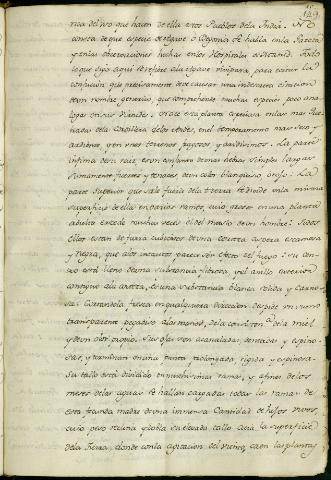 129
rica del uso que hacen de ella esos Pueblos de la India. No
consta de que especie de Agave o Begonia se habla en la Gazeta
y en las observaciones hechas en los Hospitales de Madrid. Todo
lo que dijo aqui se refiere a la Agave vivipara, para evitar la
confusion que precisamente deve causar una indiscreta citacion
de un nombre generico, que comprehende muchas especies poco ana-
logas en sus virtudes. Crece esta planta espesiva en las mas
de las Cordillera de los Andes, en el temperamento mas seco y
ardiente, y en unos terrenos pajosos y aridissimos. La parte
infima de su raiz, es un conjunto de unas hebras simples largas
sumamente fuertes y tenaces, de un color blanquisco, grosso. La
parte superior que sale fuera de la tierra se divide en la misma
superficie de ella en varios ramos, cuio grosor en una planta
adulta excede muchas veces el del muslo de un hombre: todos
ellos estan de fuera cubiertos de una corteza aspera escamosa
y negra, que a los incautos parece ser efecto del fuego: su cen-
tro està lleno de una substancia fibrosa, y el anillo exterior
contiguo a la corteza, de una substancia blanca solida y carno-
sa. Cortandola fresca en qualquiera direccion despide un sumo
transparente pegajoso alas manos, de la consistencia de la miel
y de un olor Sus ojas son acanaladas, dentadas y espino-
sas, y terminan en una punta prolongada, rigida y espinosa.
Su tallo està dividido en muchisimas ramas, y a fines de los
meses de las aguas se hallan cargadas todas las ramas de
esta fecunda madre de una inmensa cantidad de hijos vivos,
cuio peso reclina y dobla su elevado tallo acia la superficie
de la Tierra, donde con la agitacion del viento, caen las plantas